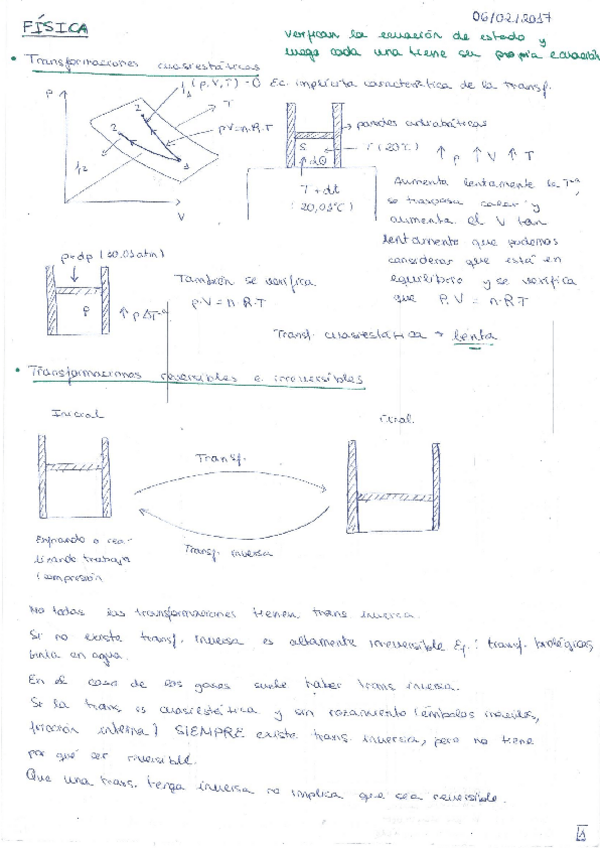 06/02/2017
FÍSICA
verifican la ecuación de estado y
luego cada una tiene su propia ecuación
• Transformaciones cuasiestáticas
(p,V,T) = 0 Ec. implícita característica de la transf.
P
T
2
2
pV=n.R.T
1
V
paredes adiabáticas
S
T (20°C)
↑p ↑V ↑T
↑dQ
T + dt
(20,01°C)
Aumenta lentamente la Tª,
se traspasa calor y
aumenta el V tan
lentamente que podemos
considerar que está en
equilibrio y se verifica
que P.V = n.R.T
p+dp (10,01atm)
P
También se verifica
p.V = n.R.T
Transf. cuasiestática = lenta
• Transformaciones reversibles e irreversibles
Inicial
Final
Transf.
Transf. inversa
Enfriando o rea-
lizando trabajo
(compresión
No todas las transformaciones tienen trans inversa.
Si no existe transf. inversa es altamente irreversible Ej.: transf. biológicas,
tinta en agua.
En el caso de los gases suele haber trans inversa.
Si la trans. es cuasiestática y sin rozamiento (émbolos
fricción interna) SIEMPRE existe trans. inversa, pero no tiene
por qué ser reversible.
Que una trans. tenga inversa no implica que sea reversible.